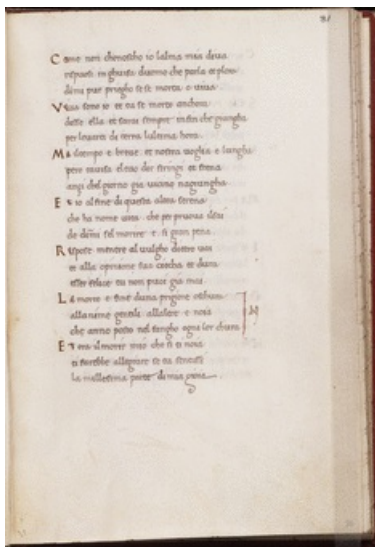 Come non chonoscho io lalma mia diva
risposi in ghuisa duomo che parla et plora
dimi pur priegho se se morta o viva
Viva sono io et tu se morto anchora
disse ella et sarai sempre infin che giungha
per levarti di terra lultima hora
Ma il tempo e brieve et nostra voglia e lungha
pero tavisa el tuo dir stringi et frena
anzi chel giorno gia vicino nagiungha
Et io al fine di questa altra serena
che ha nome vita che per pruova il sai
de dimi sel morire e si gran pena
Rispose mentre al vulgho dietro vai
et alla opinione sua ciecha et dura
esser felice tu non puoi gia mai
La morte e fine duna prigione obscura
alli anime gentili allaltre e noia
che anno posto nel fangho ogni lor chura
Et ora il morir mio che si ti noia
ti farebbe allegrare se tu sentissi
la millesima parte di mia gioia
N